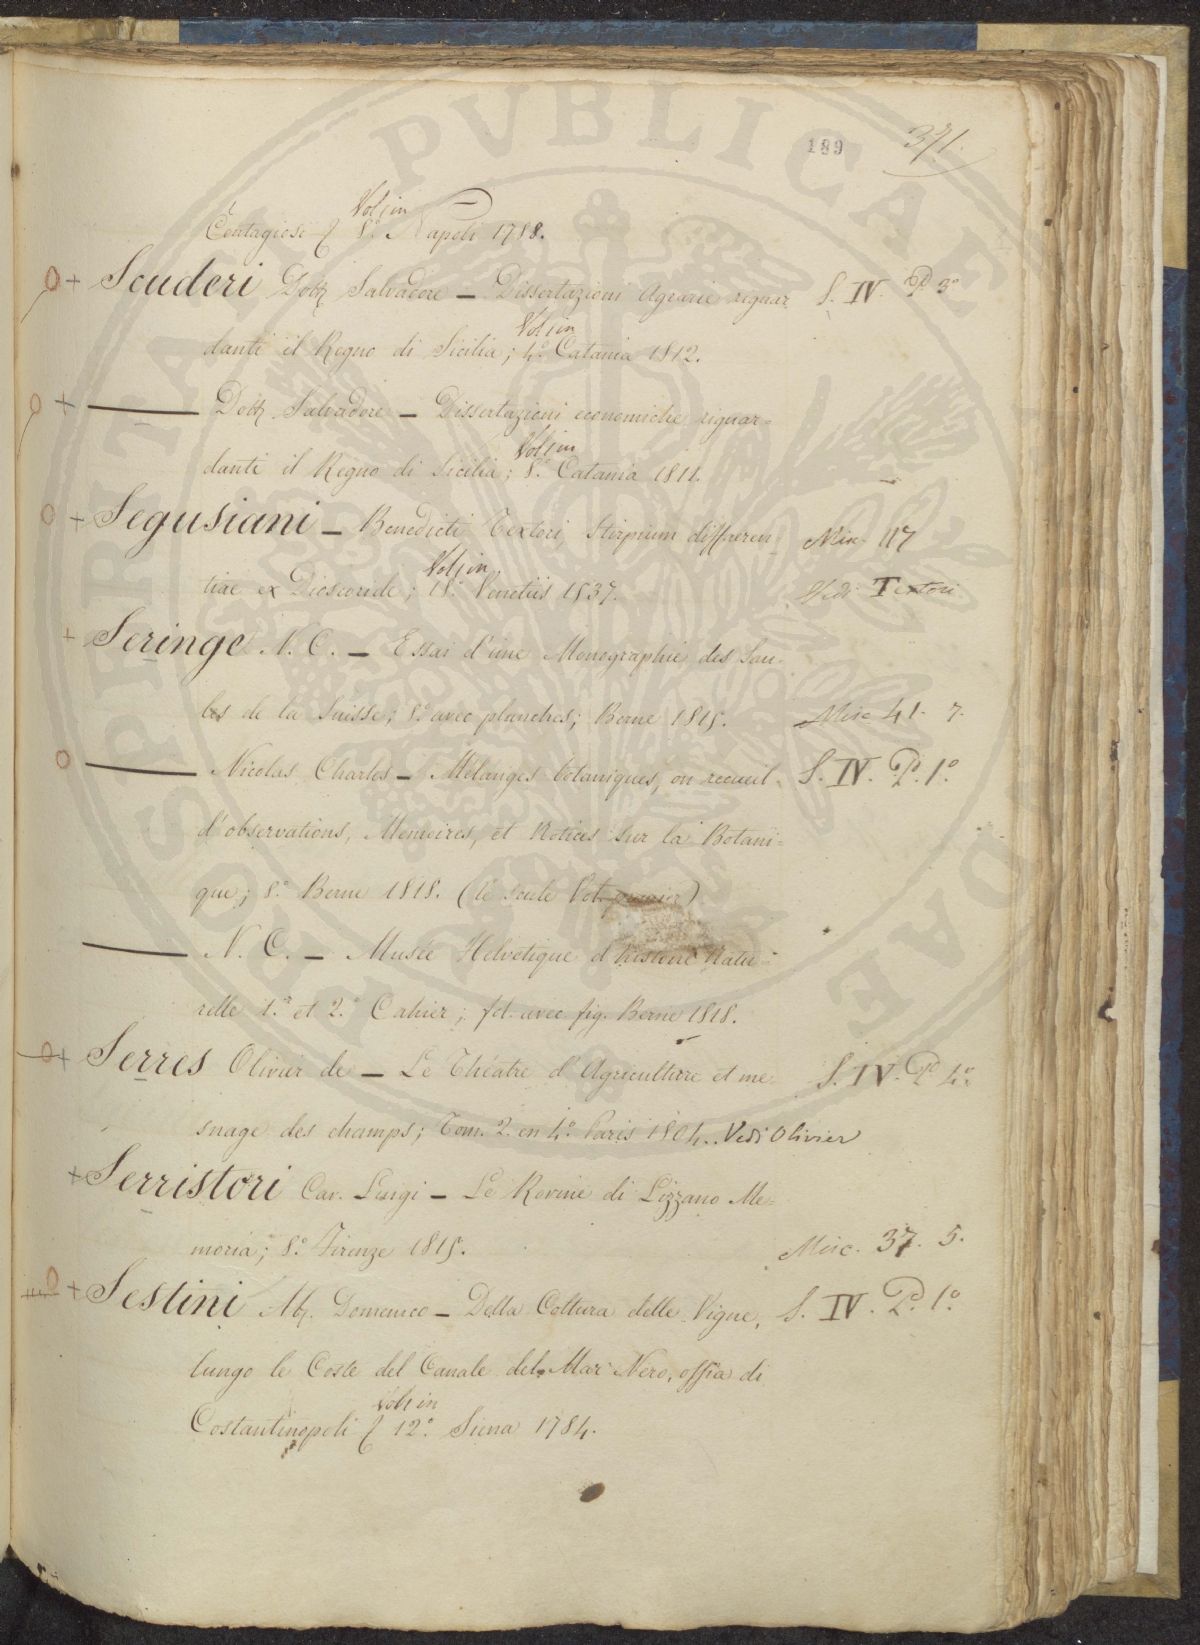 199 371.
Vol 1 in
Contagiosi 8.° Napoli 1788.
Scuderi Dott. Salvadore — Dissertazioni Agrarie riguar S. IV. P.° 3°
Vol 1 in
danti il Regno di Sicilia; 4.° Catania 1812.
—— Dott. Salvadore — Dissertazioni economiche riguar=
Vol 1 in
danti il Regno di Sicilia; 8.° Catania 1811.
Segusiani — Benedicti Textori, Stirpium differen Misc. 117
Vol 1 in
tiae ex Dioscoride; 18.° Venetiis 1537. Vedi Textori
Seringe N. C. — Essai d'une Monographie des Sau-
les de la Suisse; 8.° avec planches; Berne 1815. Misc 41. 7.
—— Nicolas Charles — Mélanges botaniques, ou recueil S. IV. P.° 1.°
d'observations, Memoires, et Notices sur la Botani=
que; 8.° Berne 1818. (le seule Vol. premier)
—— N. C. — Musée Helvetique d'histoire Natu=
relle 1.er et 2.e Cahier; fol. avec fig. Berne 1818.
Serres Olivier de — Le Théatre d'Agriculture et me S. IV. P.° 4.°
snage des champs; Tom. 2. en 4.° Paris 1804. Vedi Olivier
Serristori Cav. Luigi — Le Rovine di Lizzano Me=
moria; 8.° Firenze 1815. Misc. 37. 5.
Sestini Ab. Domenico — Della Coltura delle Vigne, S. IV. P.° 1.°
lungo le Coste del Canale del Mar Nero, ossia di
Vol 1 in
Costantinopoli 12.° Siena 1784.
PUBLICAE